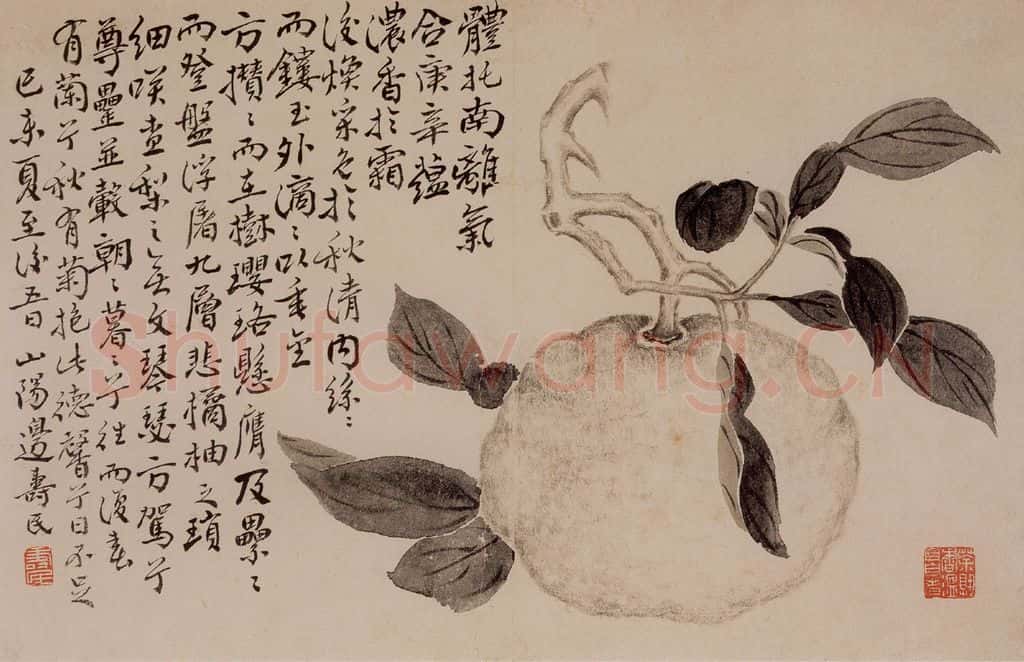 體托南離氣
合庚辛蘊
濃香於霜
後煥采色於秋清內絲〻
而鏤玉外滴〻以垂金
方攢〻而在樹瓔珞懸膺及纍〻
而登盤浮屠九層悲橘柚之瑣
細嘆查梨之無文琴瑟方駕兮
尊罍並轂朝〻暮〻兮往而復春
有蘭兮秋有菊挹此德馨兮日不足
己未夏至後五日 山陽邊壽民
壽民
Shufawang.CN